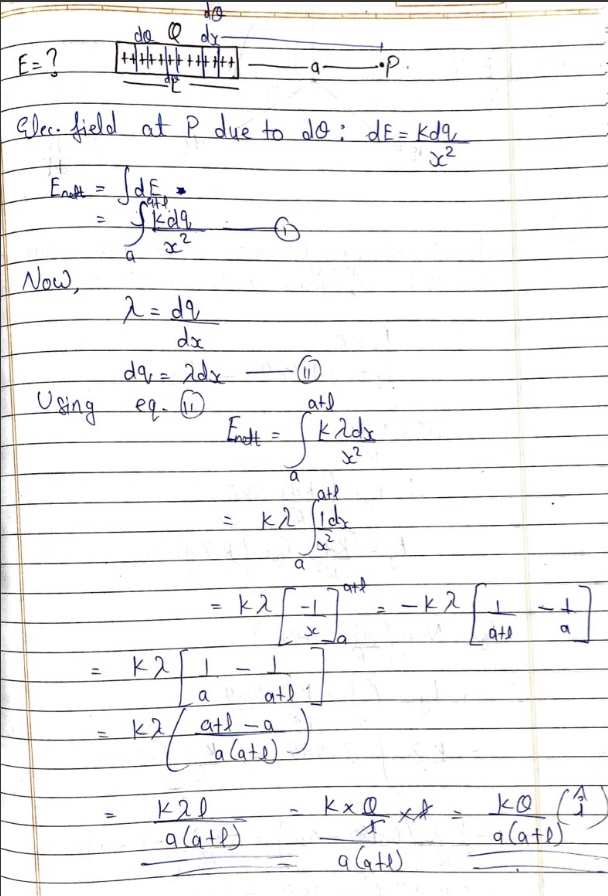 dQ
dQ Q dx
E = ? ++++++++++++ a P.
dE
Elec. field at P due to dQ : dE = Kdq/x²
Enett = ∫dE
= ∫ₐᵃ⁺ˡ Kdq/x² —— (i)
Now,
λ = dq/dx
dq = λdx —— (ii)
Using eq. (ii)
Enett = ∫ₐᵃ⁺ˡ Kλdx/x²
= Kλ ∫ₐᵃ⁺ˡ 1dx/x²
= Kλ [-1/x]ₐᵃ⁺ˡ = -Kλ [1/(a+l) - 1/a]
= Kλ [1/a - 1/(a+l)]
= Kλ ((a+l-a)/(a(a+l)))
= Kλl/(a(a+l)) = (K × Q/l × l)/(a(a+l)) = KQ/(a(a+l))